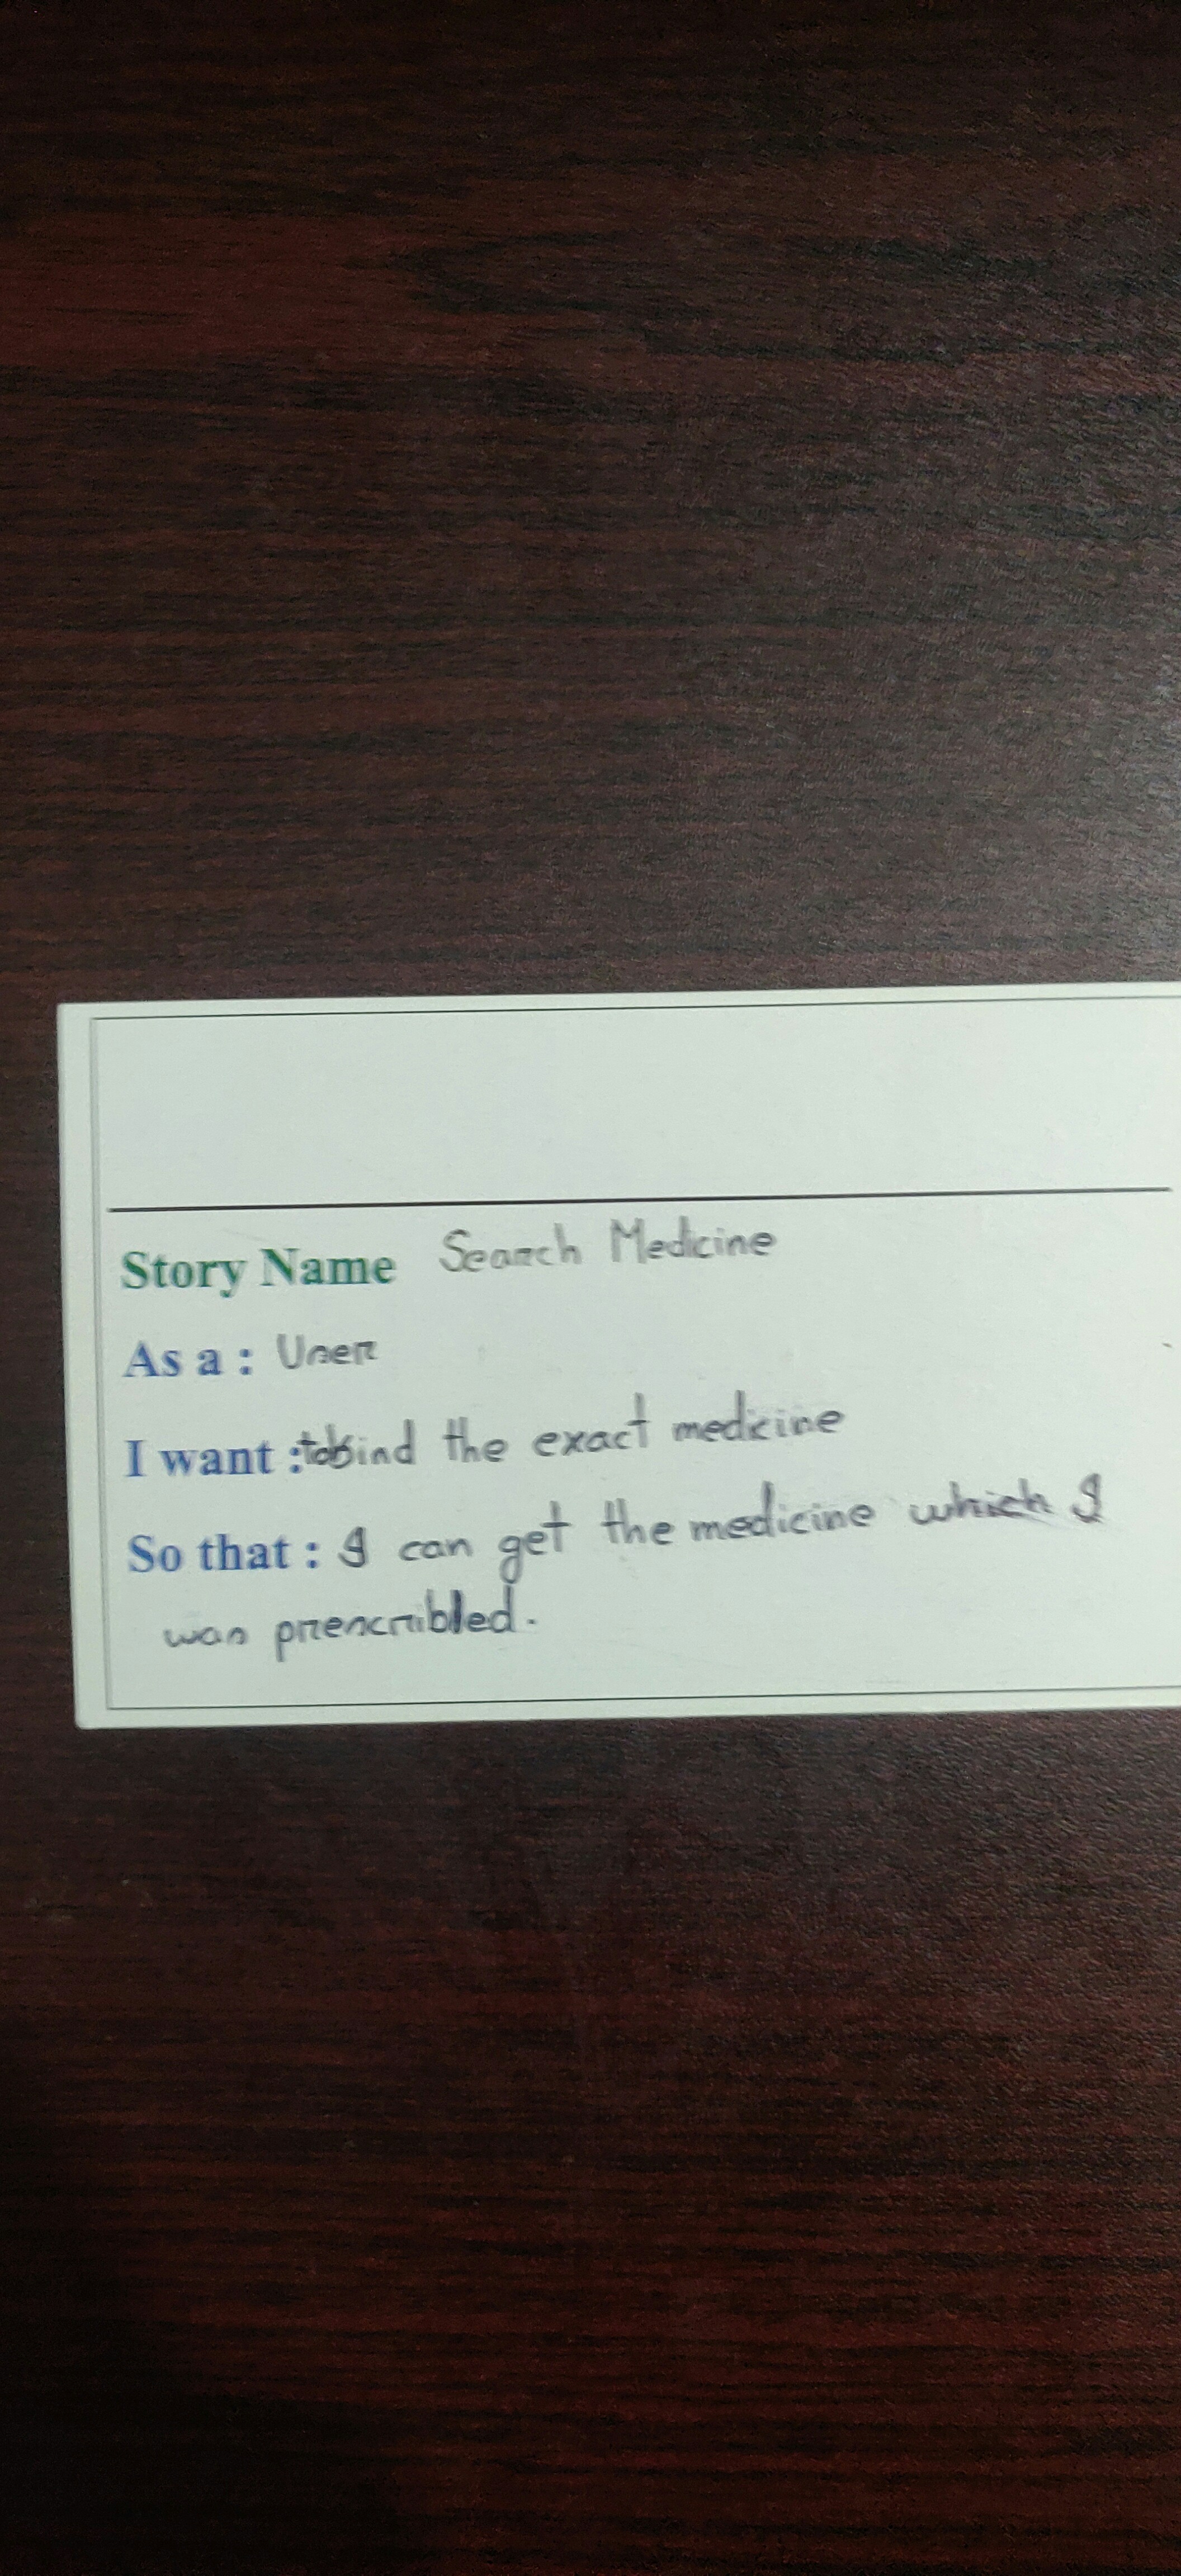 Story Name Search Medicine
As a : User
I want : to find the exact medicine
So that : I can get the medicine which I
was prescribled.